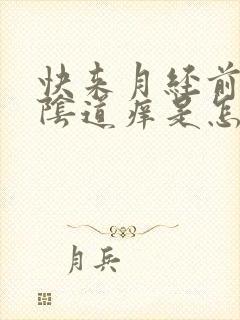 快来月经前
陰道痒是怎
月兵